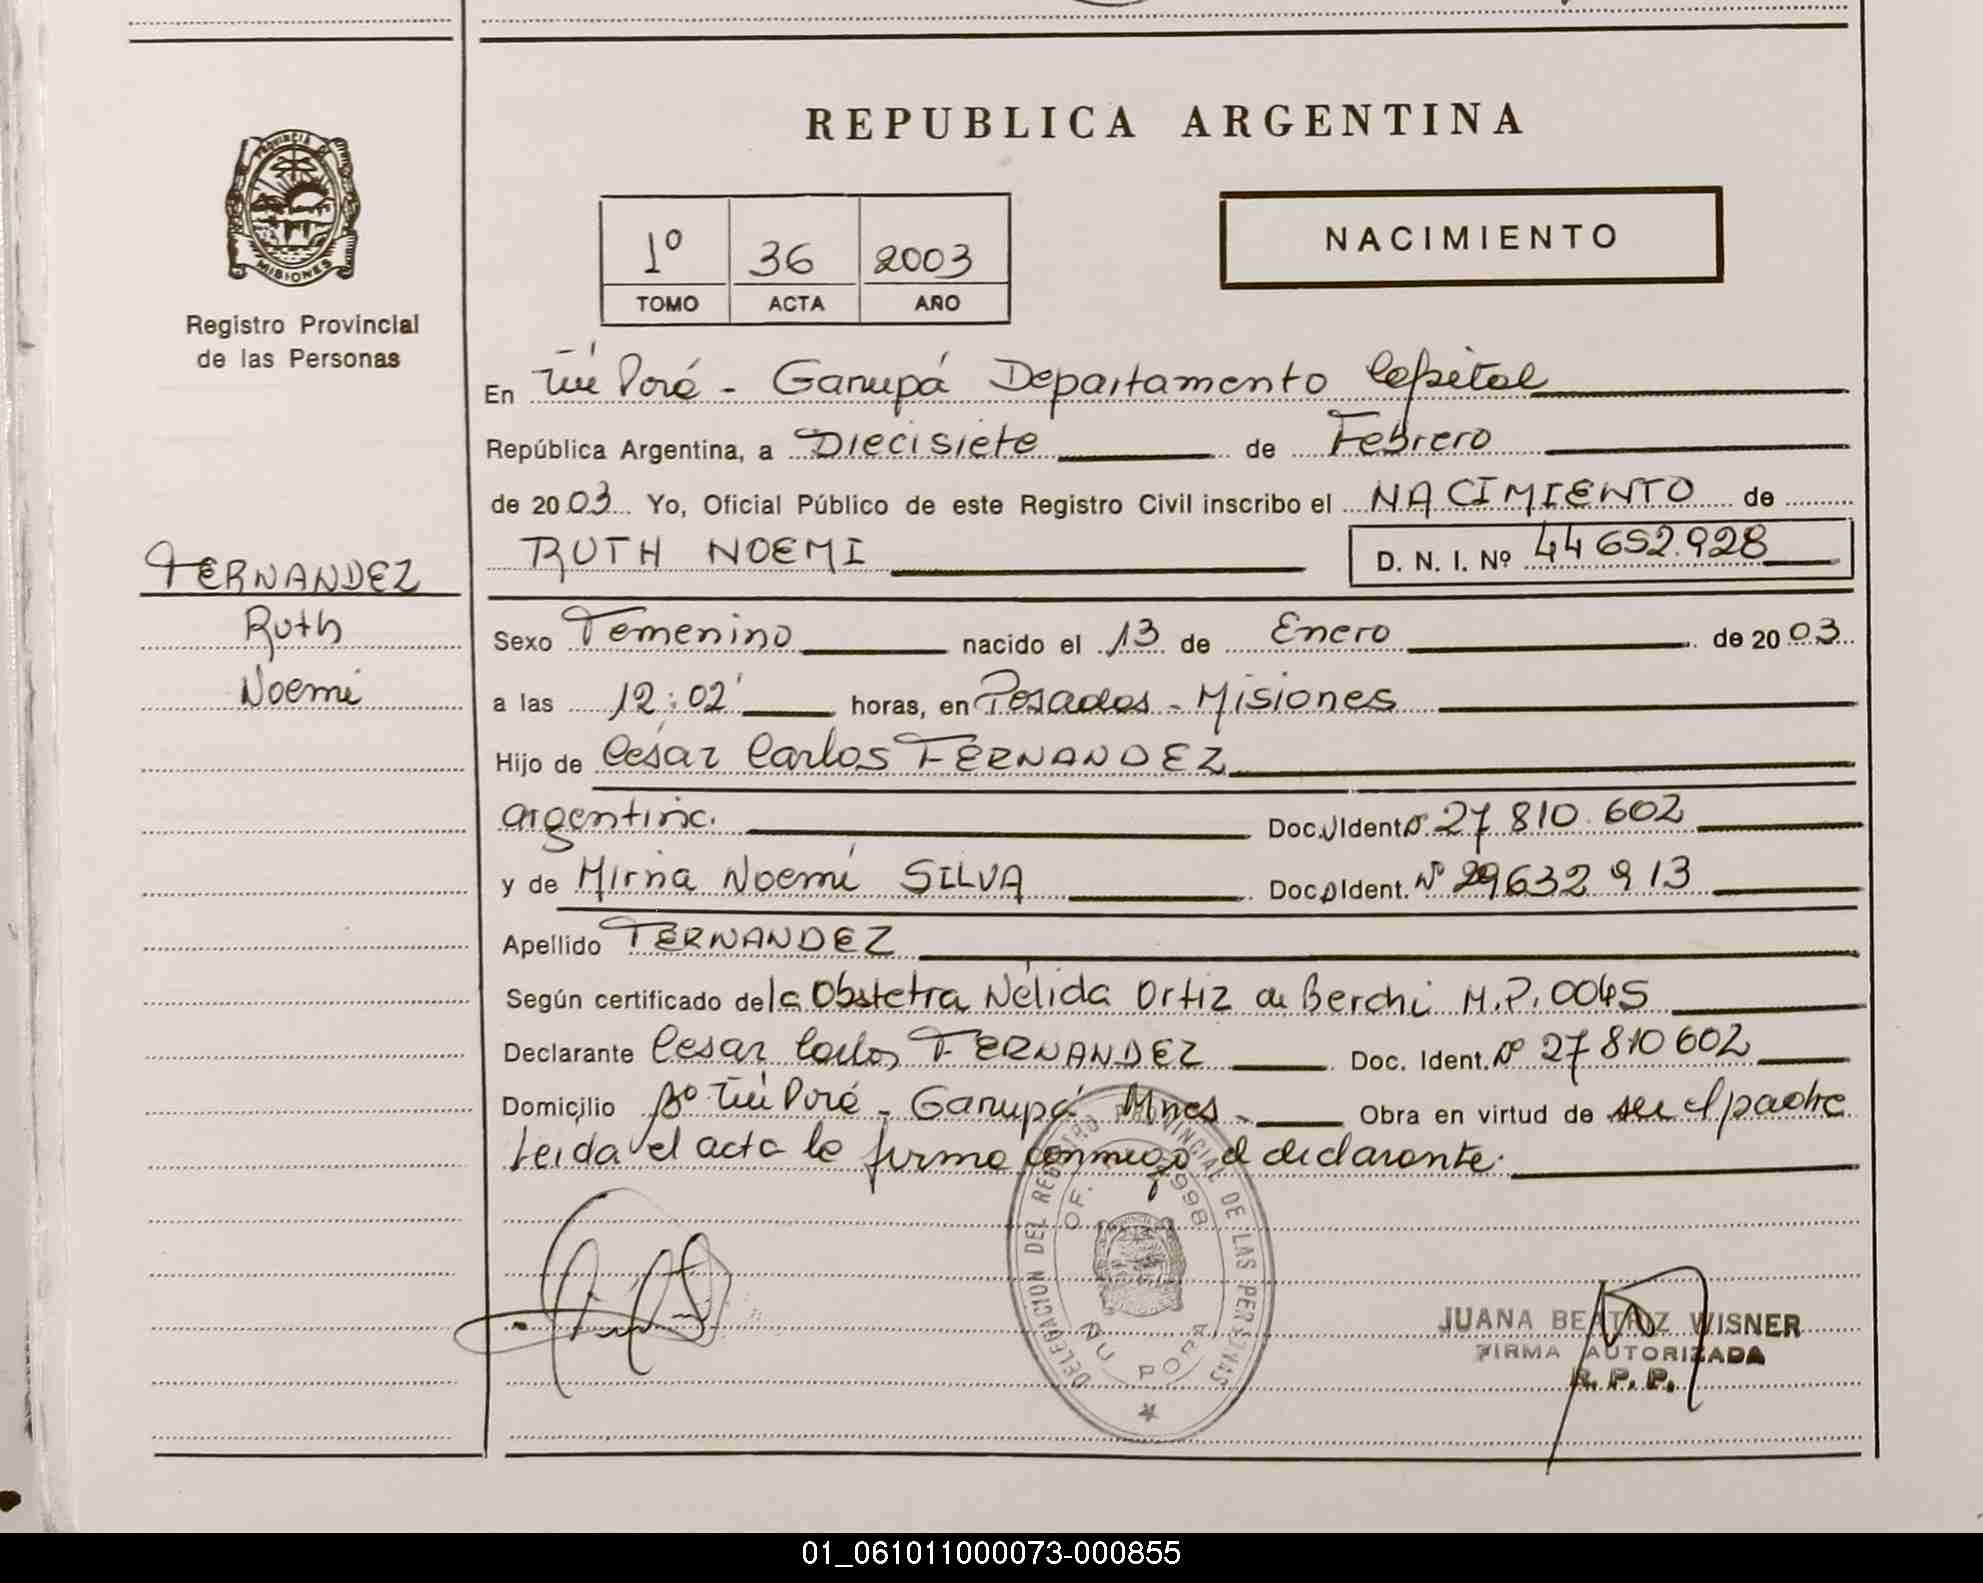 REPUBLICA ARGENTINA
PROVINCIA DE
MISIONES
Registro Provincial
de las Personas
1º 36 2003
TOMO ACTA AÑO
NACIMIENTO
En Ñú Porá - Garupá Departamento Capital
República Argentina, a Diecisiete de Febrero
de 2003 Yo, Oficial Público de este Registro Civil inscribo el NACIMIENTO de
RUTH NOEMI D. N. I. Nº 44 652.928
FERNANDEZ
Ruth
Noemi
Sexo Femenino nacido el 13 de Enero de 2003
a las 12:02' horas, en Posadas - Misiones
Hijo de César Carlos FERNANDEZ
argentina. Doc. Ident. Nº 27 810 602
y de Mirna Noemí SILVA Doc. Ident. Nº 29632 913
Apellido FERNANDEZ
Según certificado de la Obstetra Nélida Ortiz de Berchi M.P. 0045
Declarante Cesar Carlos FERNANDEZ Doc. Ident. Nº 27 810 602
Domicilio Bº Ñú Porá - Garupá Mnes - Obra en virtud de ser el padre
Leida el acta la firma conmigo el declarante.
DELEGACION DEL REGISTRO PROVINCIAL DE LAS PERSONAS
OF. 998
ÑU PORA
JUANA BEATRIZ WISNER
FIRMA AUTORIZADA
R. P. P.
01_061011000073-000855